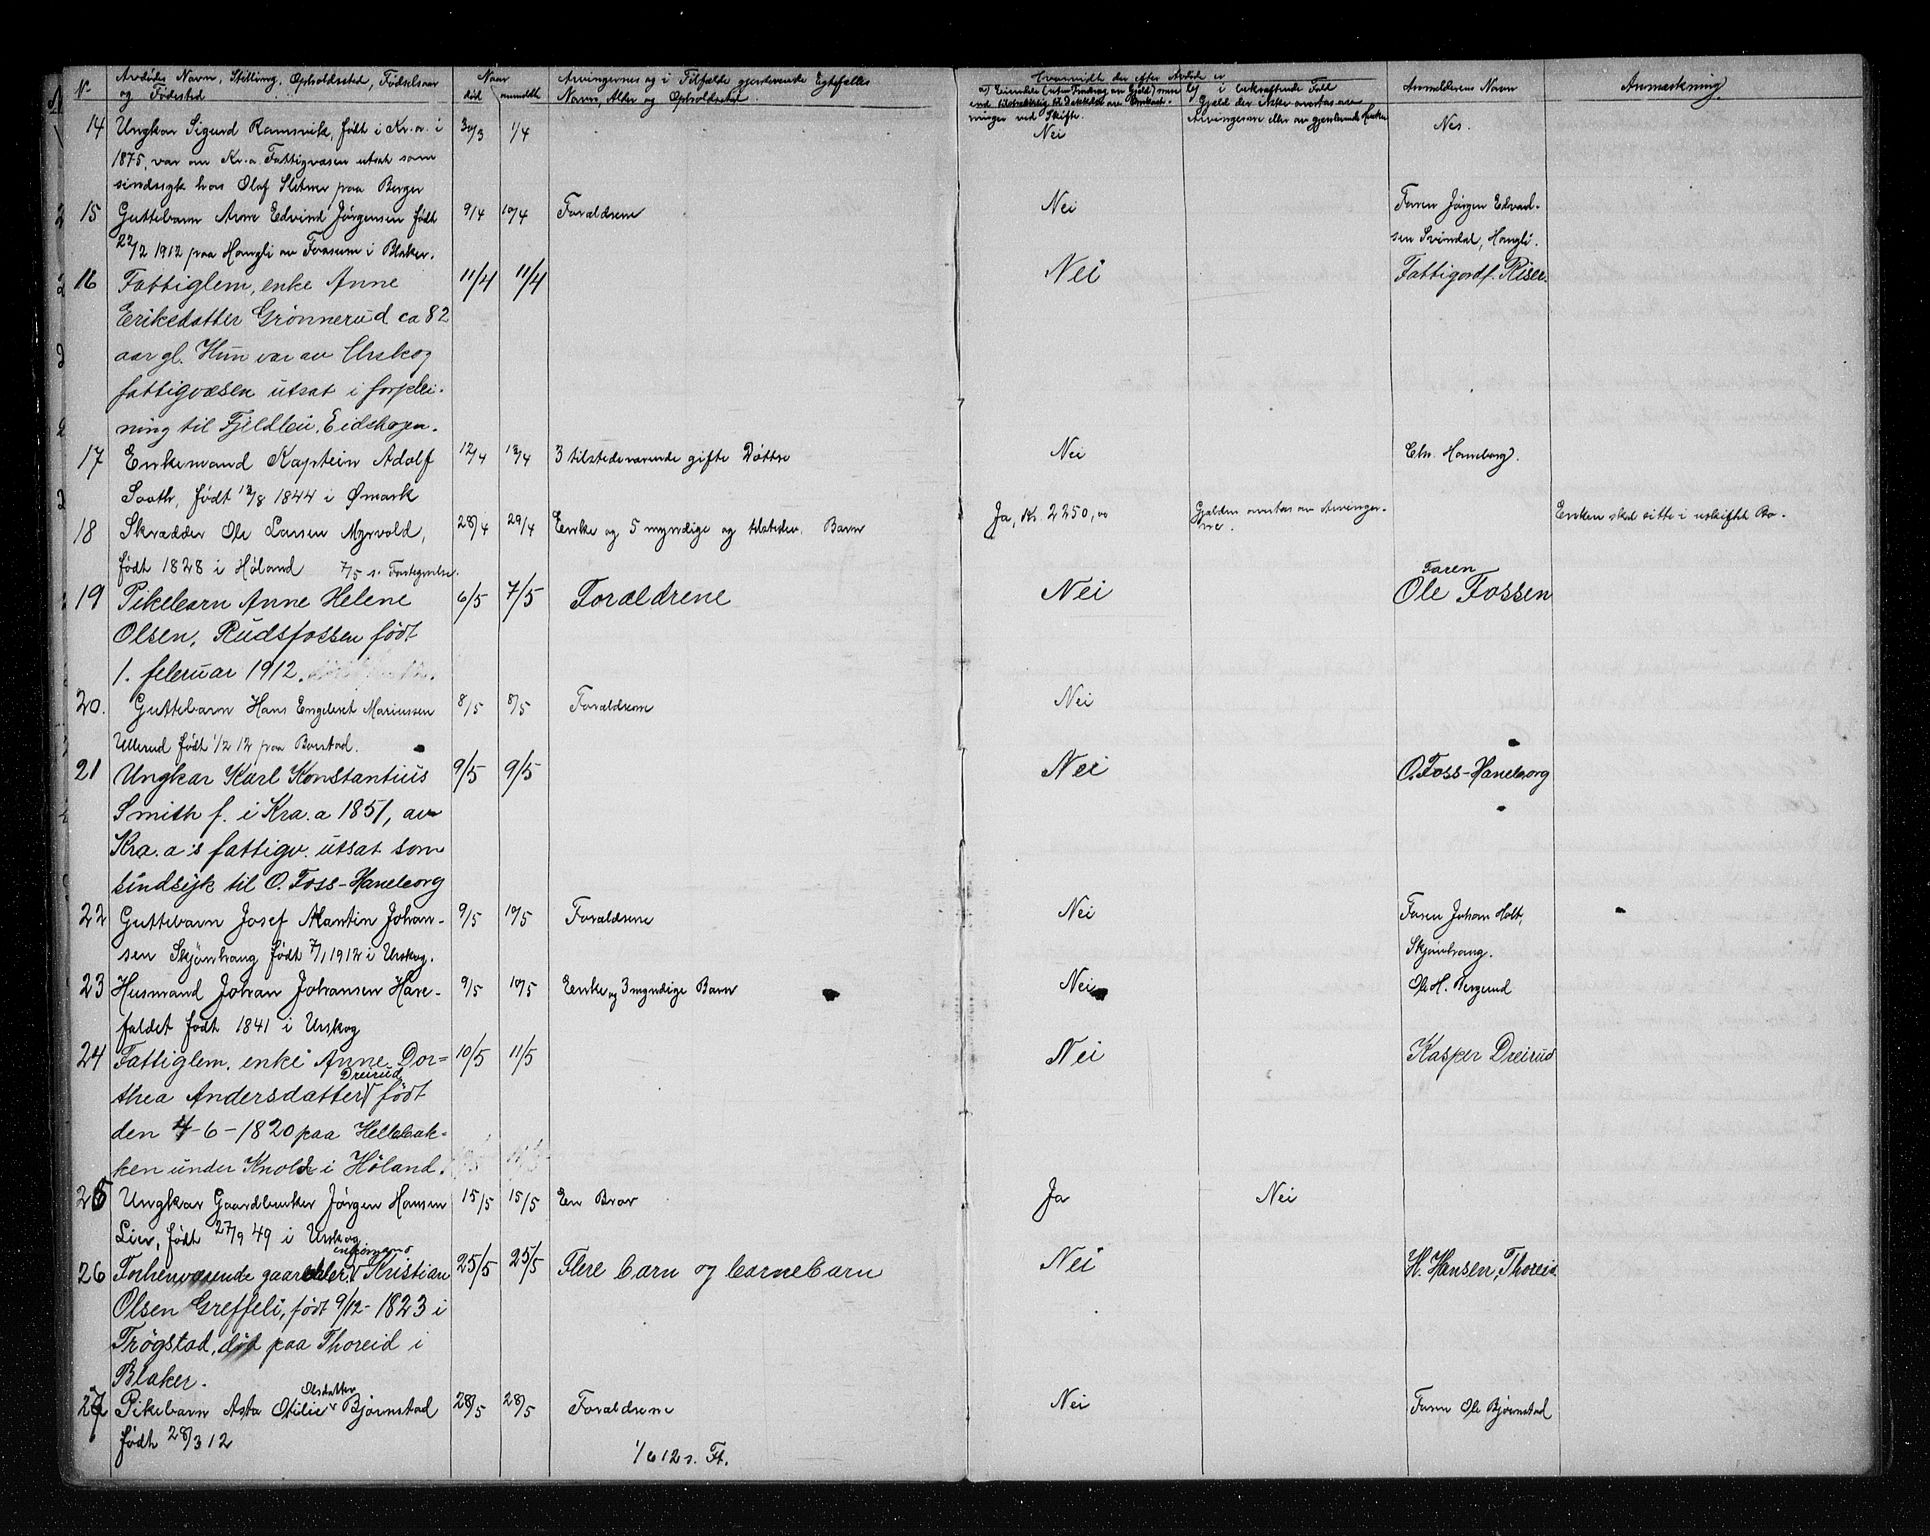 No
Avdødes Navn, Stilling, Opholdssted, Fødselsaar
og Fødested
Naar
død
anmeldt
Arvingernes og i Tilfælde gjenlevende Egtefælles
Navn, Alder og Opholdssted.
Hvorvidt der efter Avdøde er
a) Eiendele (uten Fradrag av Gjæld) mere
end tilstrækkelig til Dækkelse av
ninger ved Skifte.
b) i bekræftende Fald
Gjæld der ikke overtas av
Arvingerne eller av gjenlevende
Anmelderens Navn
Anmerkning.
14 Ungkar Sigurd Ramsvik, født i Kr.a. i 30/3 1/4 Nei Nes.
1875, var av Kr.a. Fattigvæsen utsat som
sindssyk hos Olaf Slitner paa Berger
15 Guttebarn Arne Edvind Jørgensen født 9/4 10/4 Forældrene Nei Faren Jørgen Edvard-
22/2 1912 paa Hangli av Fosserum i Blaker. sen Svindal, Hangli.
16 Fattiglem, enke Anne 11/4 11/4 Nei Fattigordf. Riser.
Eriksdatter Grønnerud ca 82
aar gl. Hun var av Urskog
fattigvæsen utsat i forplei-
ning til Fjeldlei, Eidskogen.
17 Enkemand Kaptein Adolf 12/4 13/4 3 tilstedeværende gifte Døttre Nei Chr. Haneborg.
Sooth, født 13/8 1844 i Ømark
18 Skrædder Ole Larsen Myrvold, 28/4 29/4 Enke og 5 myndige og tilstedev. Barn Ja, Kr. 2250,00 Gjælden overtas av Arvinger- Enken skal sitte i uskiftet Bo.
ne.
født 1828 i Høland 7/5 s. Fortegnelse.
19 Pikebarn Anne Helene 6/5 7/5 Forældrene Nei Faren
Ole Fossen
Olsen, Rudsfossen født
1. februar 1912.
20. Guttebarn Hans Engebret Mariussen 8/5 8/5 Forældrene Nei
Ullerud født 1/2 12 paa Borstad.
21 Ungkar Karl Konstantius 9/5 9/5 Nei O. Foss-Haneborg
Smith f. i Kra.a 1851, av
Kra.a's fattigv. utsat som
sindsyk til O. Foss-Haneborg
22 Guttebarn Josef Martin Johan- 9/5 10/5 Forældrene Nei Faren Johan Holt,
sen Skjønhaug født 7/1 1912 i Urskog. Skjønhaug.
23 Husmand Johan Johansen Hare- 9/5 10/5 Enke og 3 myndige Barn Nei Ole H. Bergerud
faldet født 1841 i Urskog
24 Fattiglem, enke Anne Dor- 10/5 11/5 Nei Kasper Dreirud
Dreirud
thea Andersdatter født
den 4-6-1820 paa Hellebak-
ken under Knold i Høland.
25 Ungkar Gaardbruker Jørgen Hansen 15/5 15/5 En Bror Ja Nei
Lier, født 27/9 49 i Urskog
26 Forhenværende gaardeier, Kristian 25/5 25/5 Flere barn og barnebarn Nei H. Hansen, Thoreid
Olsen Greffeli, født 9/12-1823 i
Trøgstad, død paa Thoreid i
Blaker.
27 Pikebarn Asta Otilie Olsdatter Bjørnstad 28/5 28/5 Forældrene Nei Faren Ole Bjørnstad
født 28/3 12
1/6 12 s. Ft.